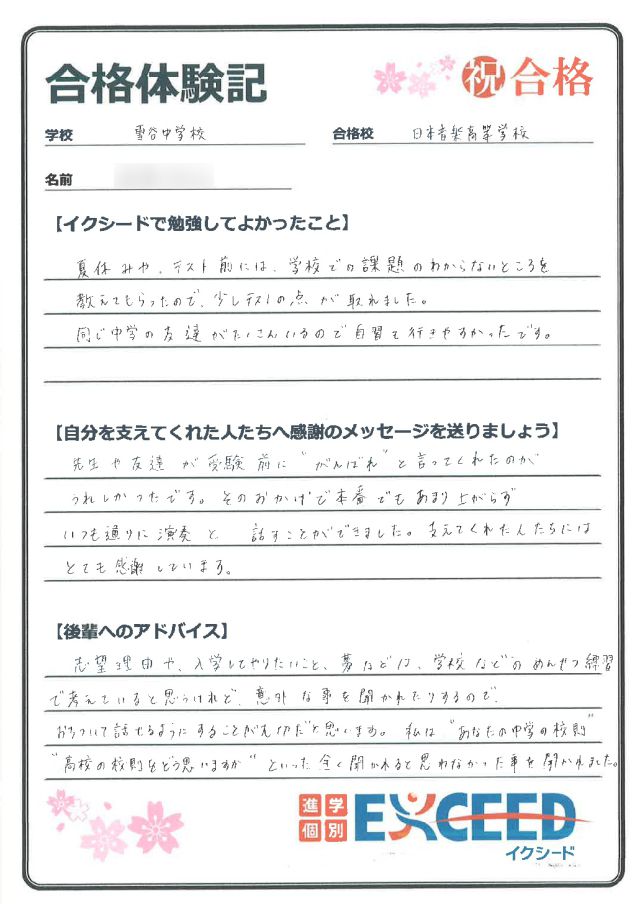 合格体験記
祝 合格
学校 雪谷中学校
合格校 日本音楽高等学校
名前
【イクシードで勉強してよかったこと】
夏休みや、テスト前には、学校での課題のわからないところを
教えてもらったので、少しテストの点が取れました。
同じ中学の友達がたくさんいるので自習も行きやすかったです。
【自分を支えてくれた人たちへ感謝のメッセージを送りましょう】
先生や友達が受験前に"がんばれ"と言ってくれたのが
うれしかったです。そのおかげで本番でもあまり上がらず
いつも通りに演奏と 話すことができました。支えてくれた人たちには
とても感謝しています。
【後輩へのアドバイス】
志望理由や、入学してやりたいこと、夢などは、学校などのめんせつ練習
で考えていると思うけれど、意外な事を聞かれたりするので、
おちついて話せるようにすることが大切だと思います。私は"あなたの中学の校則"
"高校の校則をどう思いますか"といった全く聞かれると思わなかった事を聞かれました。
進学
個別 EXCEED
イクシード